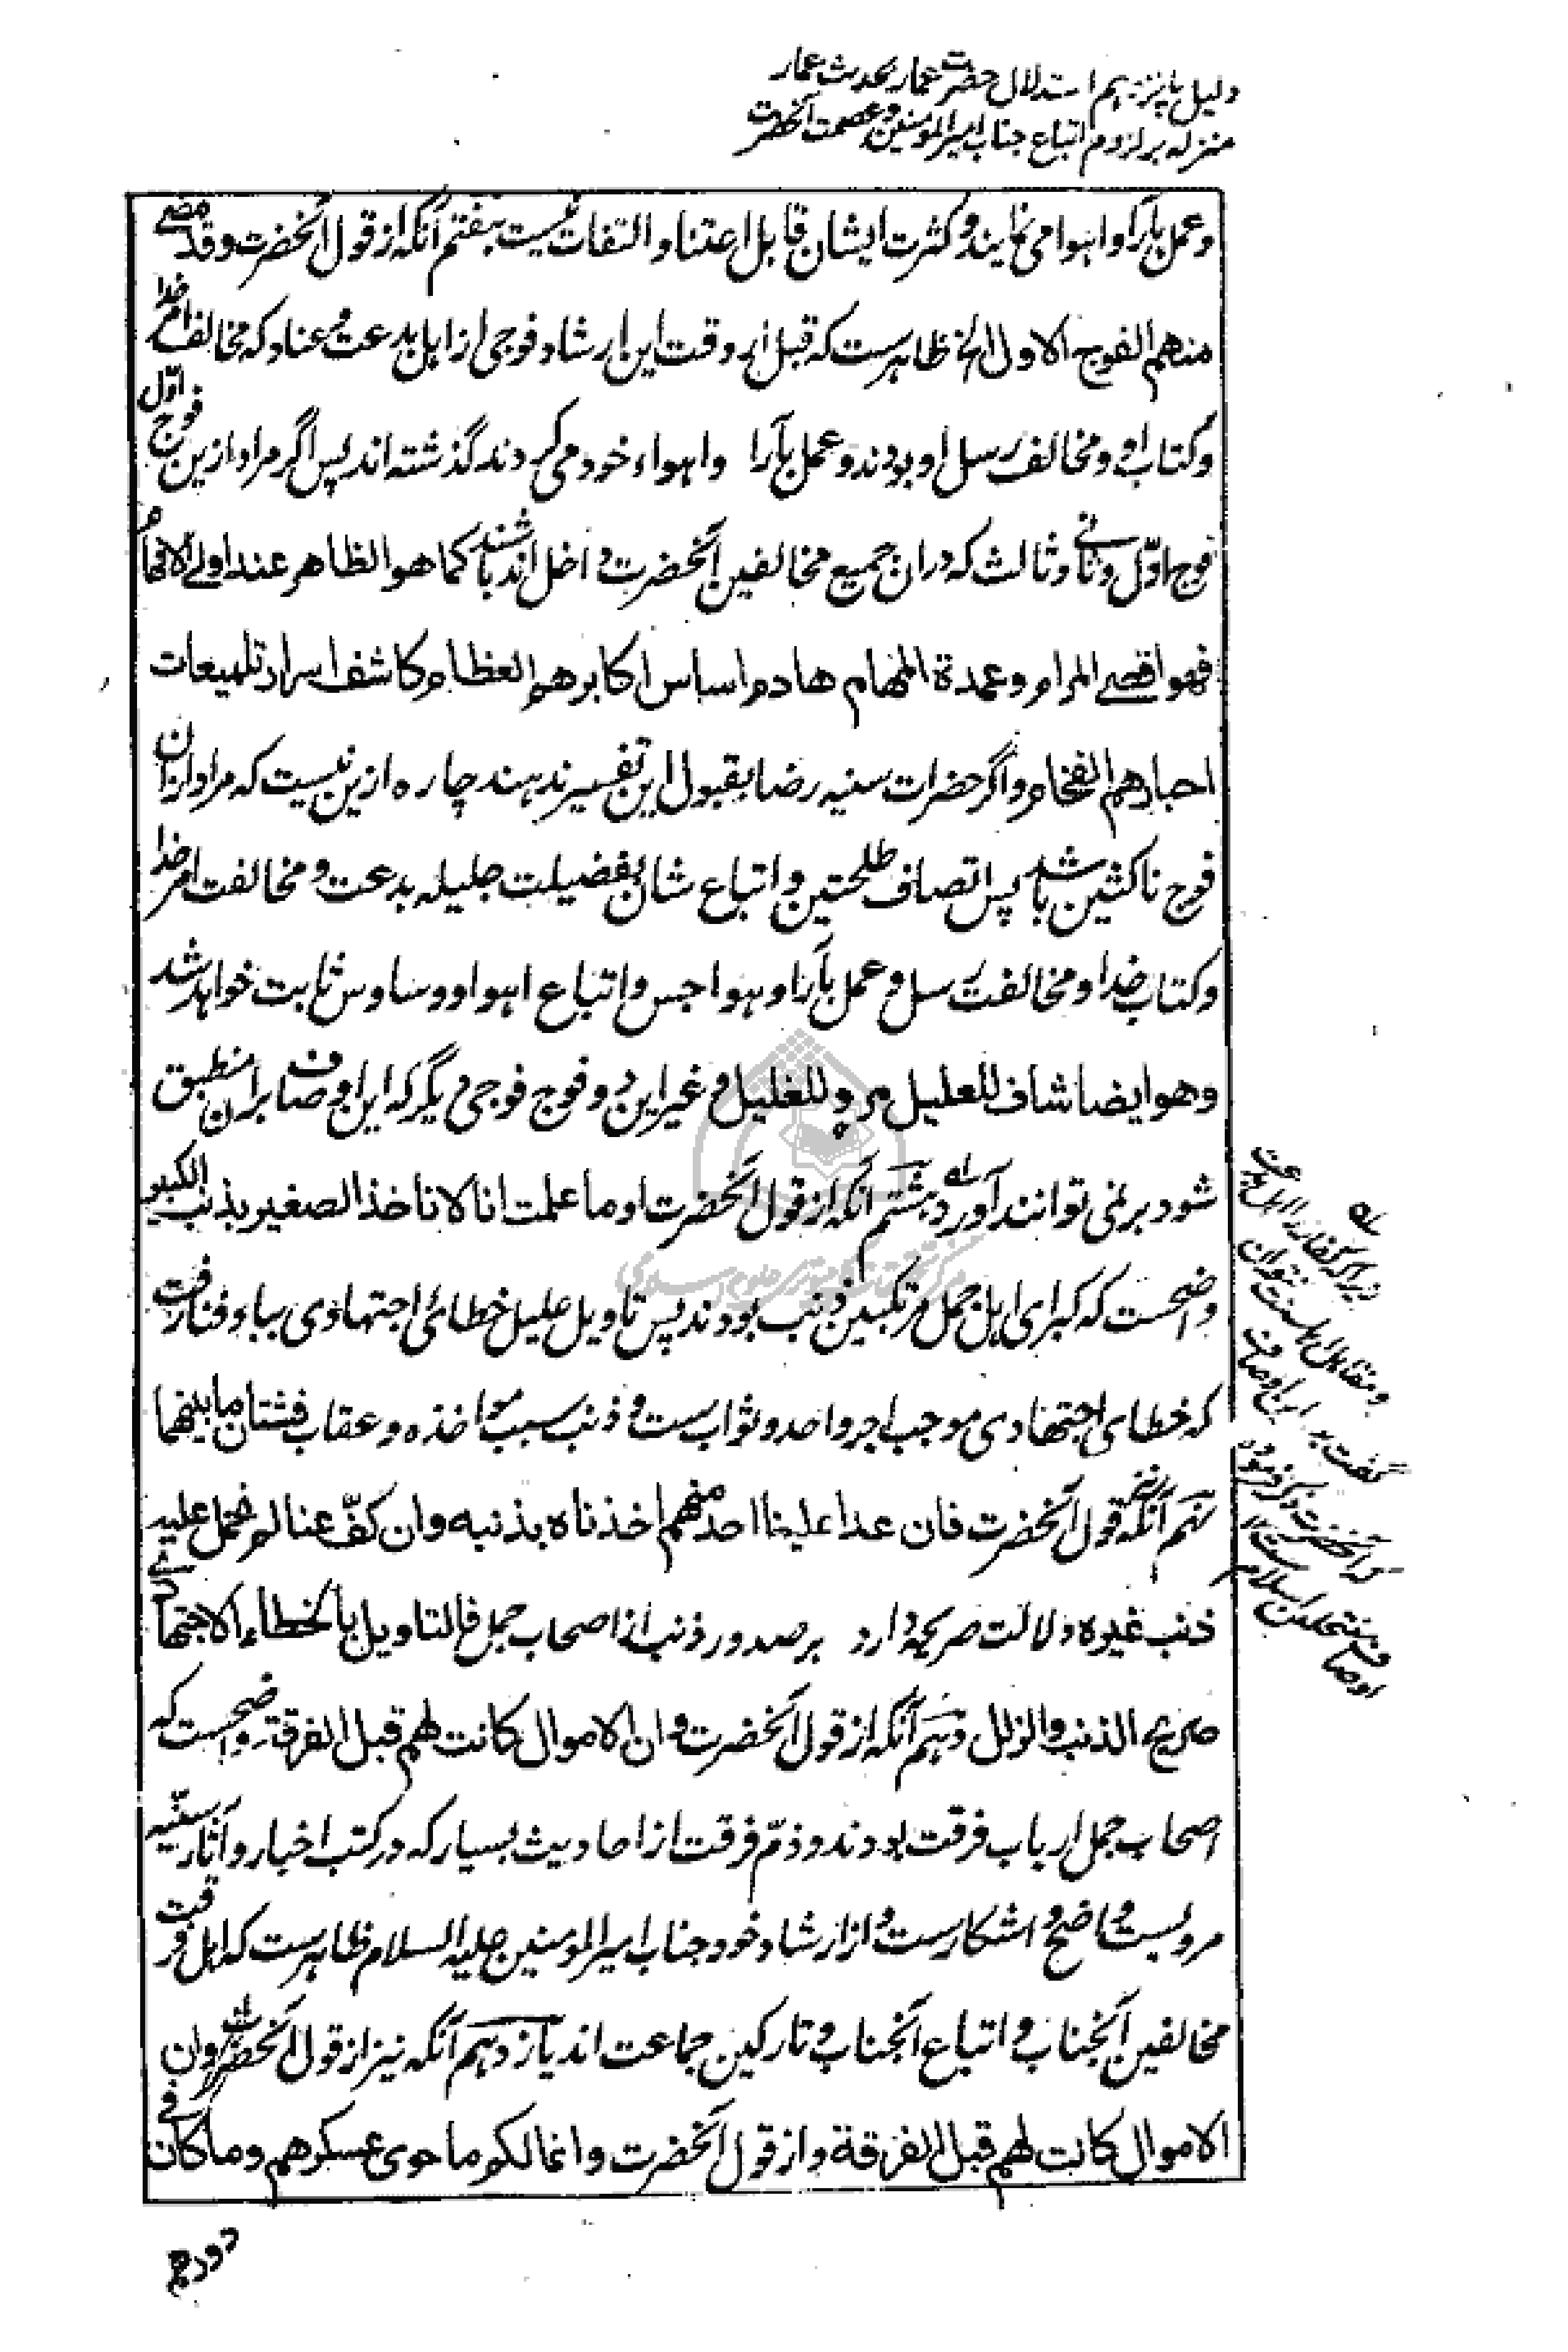 دلیل پانزدهم استدلال حضرت عمار بحدیث عمار
منزله بر لزوم اتباع جناب امیرالمومنین و عصمت آنحضرت
و عمل بآرا و اهوا می نمایند و کثرت ایشان قابل اعتنا و التفات نیست هفتم آنکه از قول آنحضرت وقد مضی
منهم الفوج الاول الخ ظاهرست که قبل از وقت این ارشاد فوجی از اهل بدعت و عناد که مخالف امر خدا
و کتاب او و مخالف رسل او بودند و عمل بآرا و اهواء خود می کردند گذشته اند پس اگر مراد ازین فوج اول
فوج اوّل و ثانی و ثالث که دران جمیع مخالفین آنحضرت داخل اند باشند کما هو الظاهر عند اولی الافهام
فهو اقصی المرام و عمدة المهام هادم اساس اکابرهم العظام و کاشف اسرار تلمیعات
احبارهم الفخام و اگر حضرات سنیه رضا بقبول این تفسیر ندهند چاره ازین نیست که مراد ازان
فوج ناکثین باشد پس اتصاف طلحتین و اتباع شان بفضیلت جلیله بدعت و مخالفت امر خدا
و کتاب خدا و مخالفت رسل و عمل بآرا و هواجس و اتباع اهوا و وساوس ثابت خواهد شد
وهو ایضا شاف للعلیل مرو للغلیل و غیر این دو فوج فوجی دیگر که این اوصاف بران منطبق
شود بر نمی توانند آورد هشتم آنکه از قول آنحضرت اوما علمت انا لا ناخذ الصغیر بذنب الکبیر
واضحست که کبرای اهل جمل مرتکبین ذنب بودند پس تاویل علیل خطائ اجتهادی بباء فنا رفت
که خطای اجتهادی موجب اجر واحد و ثواب ست و ذنب سبب مواخذه و عقاب فشتان ما بینهما
نهم آنکه نیز قول آنحضرت فان عدا علینا احد منهم اخذناه بذنبه وان کفّ عنا لم نحمل علیه
ذنب غیره دلالت صریحه دارد بر صدور ذنب از اصحاب جمل فالتاویل بالخطاء الاجتهادی
صریح الذنب والزلل دهم آنکه از قول آنحضرت وان الاموال کانت لهم قبل الفرقة واضحست که
اصحاب جمل ارباب فرقت بودند و ذمّ فرقت از احادیث بسیار که در کتب اخبار و آثار سنّیه
مرویست واضح و اشکارست و از ارشاد خود جناب امیرالمومنین علیه السلام ظاهرست که اهل فرقت
مخالفین آنجناب و اتباع آنجناب و تارکین جماعت اند یازدهم آنکه نیز از قول آنحضرت وان
الاموال کانت لهم قبل الفرقة و از قول آنحضرت وانما لکم ما حوی عسکرهم وما کان فی
دورهم
زیراکه کفار را اهل بدعت
و مقابل اهلسنت نتوان
گفت
که آنحضرت ذکر فرموده
اوصاف منتحلین اسلام ست